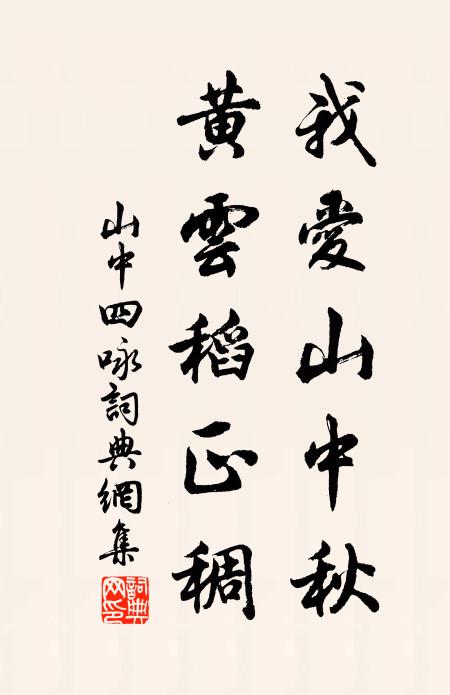 我愛山中秋
黃雲稻正稠
山中四詠詞典網集
詞典
网印